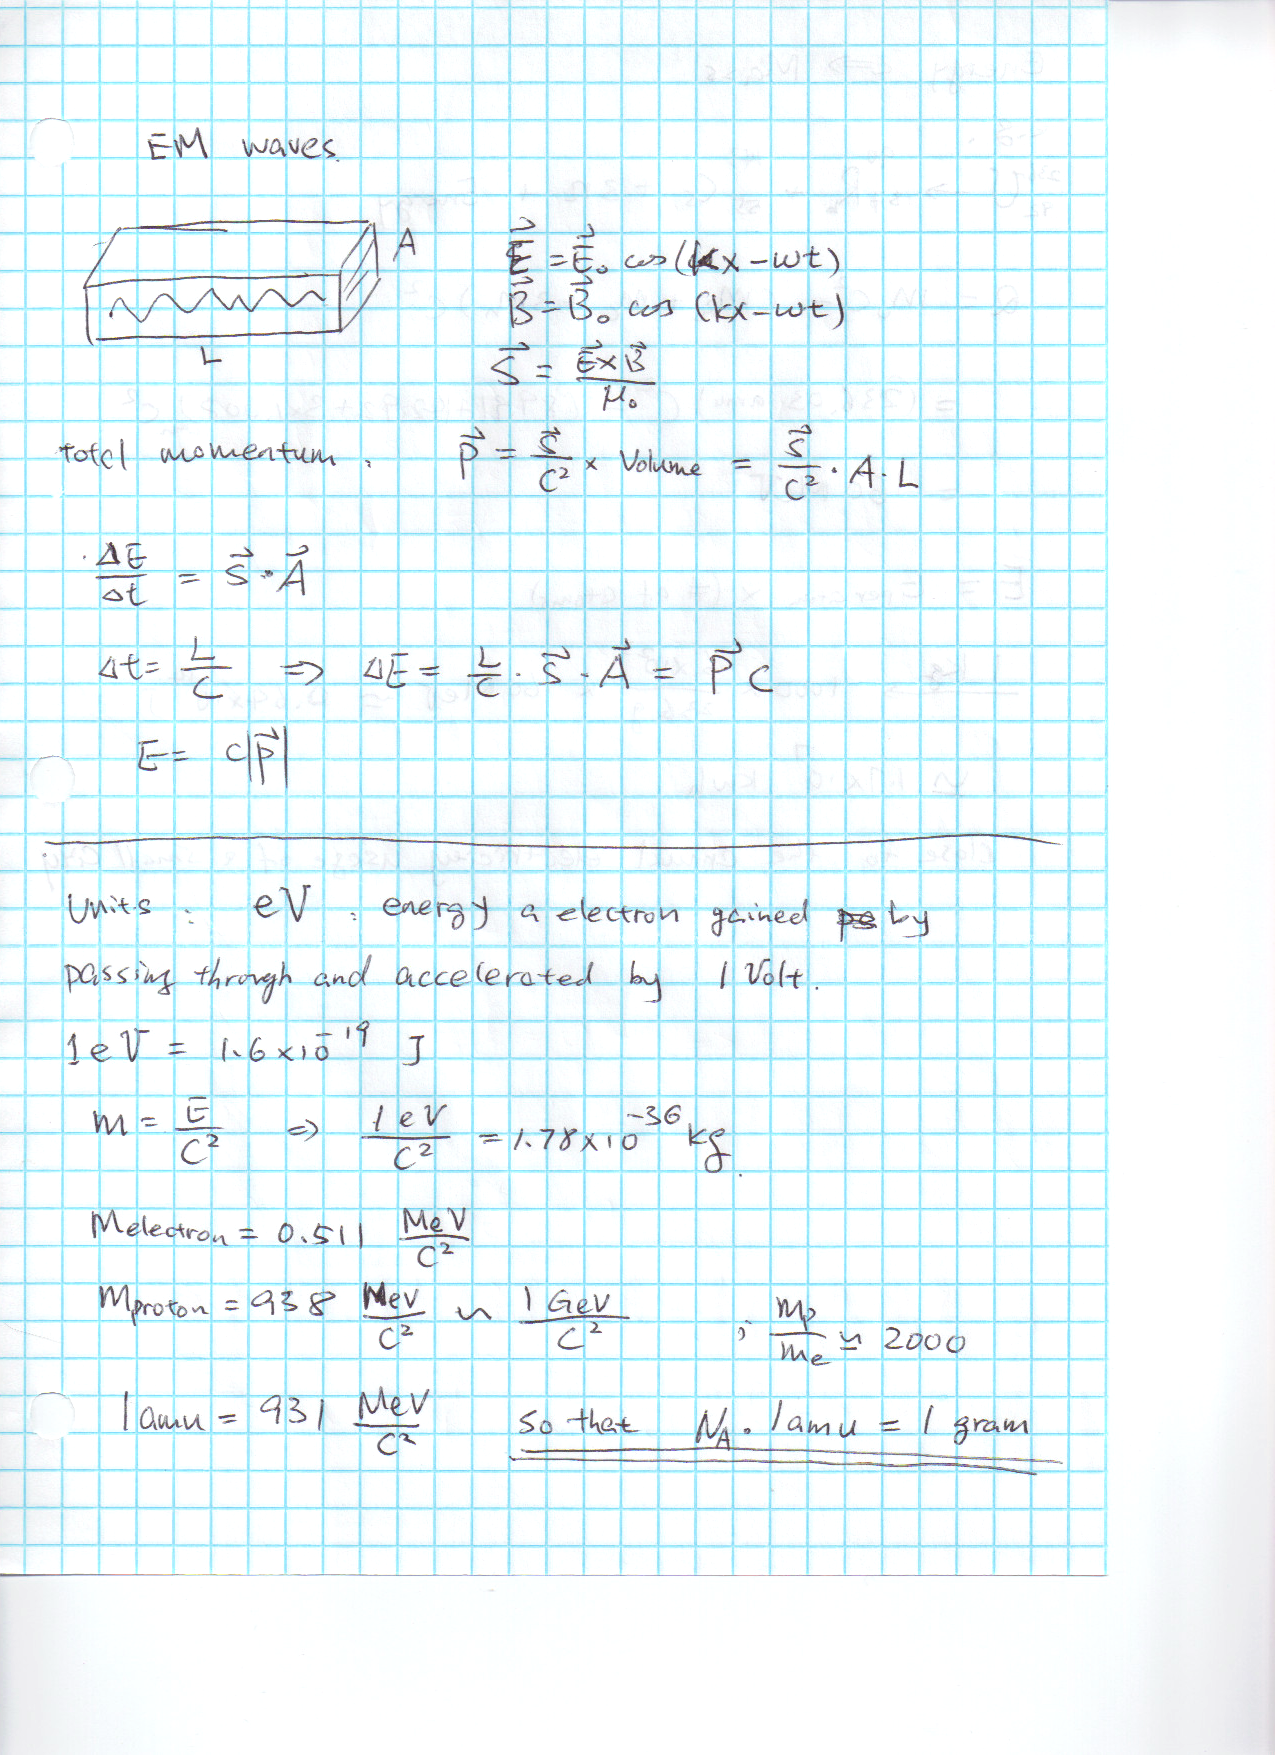 EM waves.
A
L
E⃗ = E⃗₀ cos(kx - wt)
B⃗ = B⃗₀ cos (kx - wt)
S⃗ = E⃗×B⃗ / μ₀
total momentum. P⃗ = S⃗/C² × Volume = S⃗/C² · A · L
ΔE/Δt = S⃗ · A⃗
Δt = L/C ⇒ ΔE = L/C · S⃗ · A⃗ = P⃗ C
E = C|P⃗|
Units: eV: energy a electron gained by
passing through and accelerated by 1 Volt.
1 eV = 1.6 × 10⁻¹⁹ J
m = E/C² ⇒ 1 eV/C² = 1.78 × 10⁻³⁶ kg.
Melectron = 0.511 MeV/C²
Mproton = 938 MeV/C² ~ 1 GeV/C² ; mp/me ≃ 2000
1 amu = 931 MeV/C² so that N_A · 1 amu = 1 gram